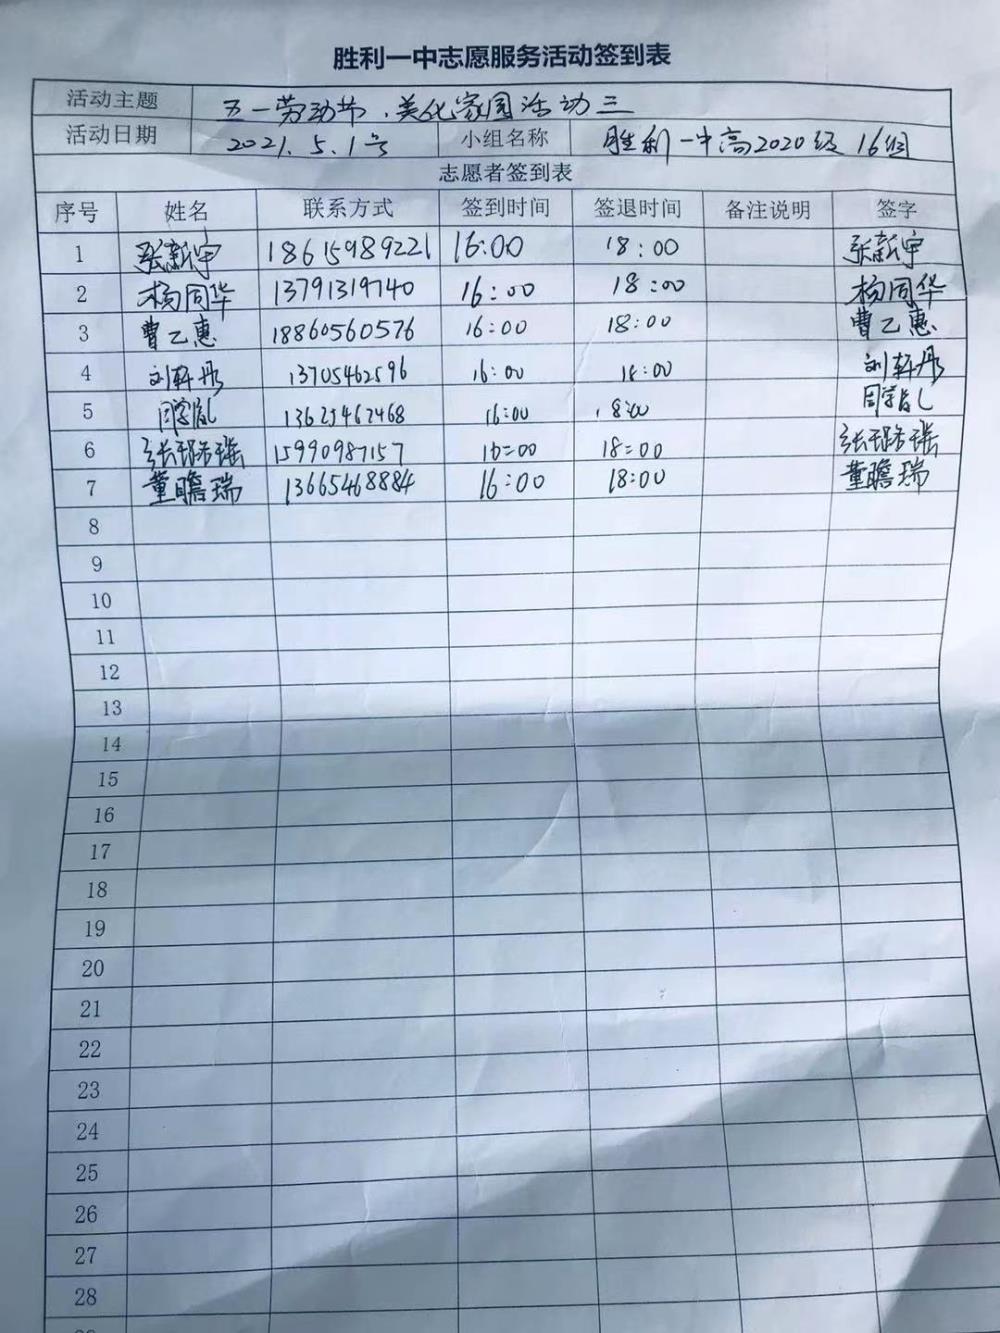 胜利一中志愿服务活动签到表
活动主题 五一劳动节.美化家园活动三
活动日期 2021.5.1号 小组名称 胜利一中高2020级16组
志愿者签到表
序号 姓名 联系方式 签到时间 签退时间 备注说明 签字
1 张新宇 18615989221 16:00 18:00 张新宇
2 杨同华 13791319740 16:00 18:00 杨同华
3 曹乙惠 18860560576 16:00 18:00 曹乙惠
4 刘轩丹 13705462596 16:00 18:00 刘轩丹
5 13625462468 16:00 18:00
6 15990987157 16:00 18:00
7 董瞻瑞 13665468884 16:00 18:00 董瞻瑞
8
9
10
11
12
13
14
15
16
17
18
19
20
21
22
23
24
25
26
27
28